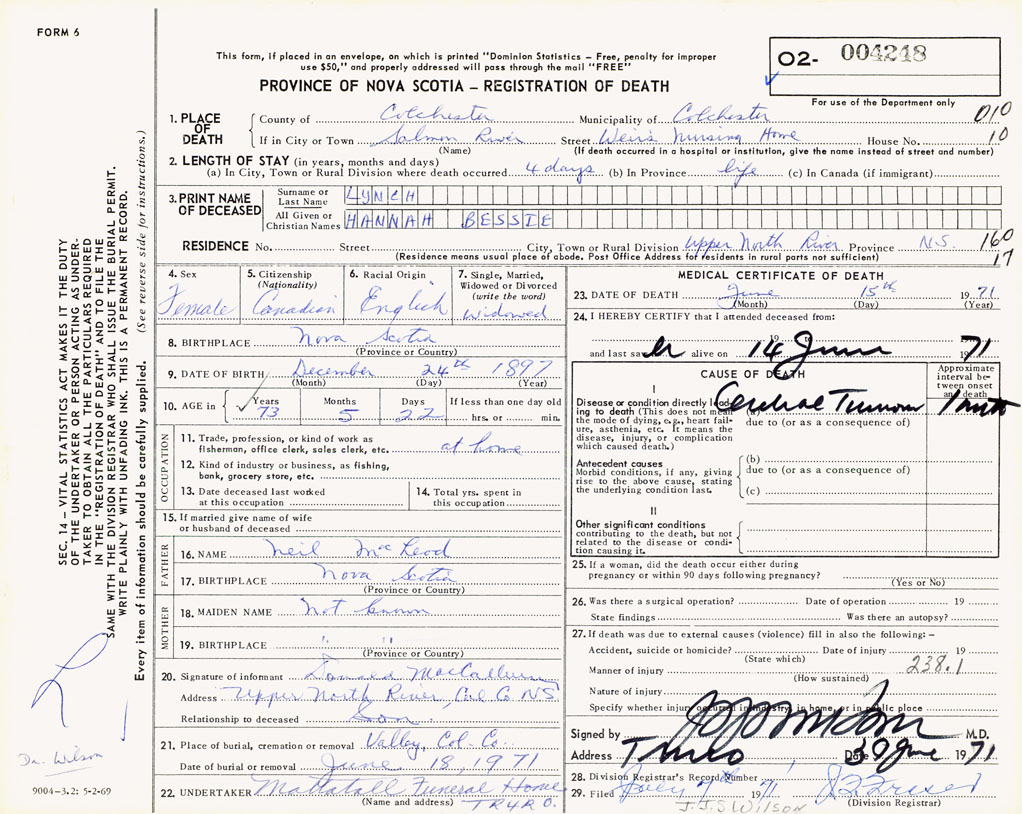 FORM 6
This form, if placed in an envelope, on which is printed "Dominion Statistics – Free, penalty for improper
use $50," and properly addressed will pass through the mail "FREE"
PROVINCE OF NOVA SCOTIA – REGISTRATION OF DEATH
02- 004248
For use of the Department only
1. PLACE OF DEATH
County of Colchester Municipality of Colchester 010
If in City or Town Salmon River Street Weirs Nursing Home House No. 10
(Name) (If death occurred in a hospital or institution, give the name instead of street and number)
2. LENGTH OF STAY (in years, months and days)
(a) In City, Town or Rural Division where death occurred 4 days (b) In Province life (c) In Canada (if immigrant)
3. PRINT NAME OF DECEASED
Surname or Last Name LYNCH
All Given or Christian Names HANNAH BESSIE
RESIDENCE No. Street City, Town or Rural Division Upper North River Province N.S. 160
(Residence means usual place of abode. Post Office Address for residents in rural parts not sufficient) 17
4. Sex Female
5. Citizenship (Nationality) Canadian
6. Racial Origin English
7. Single, Married, Widowed or Divorced (write the word) Widowed
8. BIRTHPLACE Nova Scotia
(Province or Country)
9. DATE OF BIRTH December 24th 1897
(Month) (Day) (Year)
10. AGE in Years 73 Months 5 Days 22 If less than one day old hrs. or min.
OCCUPATION
11. Trade, profession, or kind of work as fisherman, office clerk, sales clerk, etc. at home
12. Kind of industry or business, as fishing, bank, grocery store, etc.
13. Date deceased last worked at this occupation
14. Total yrs. spent in this occupation
15. If married give name of wife or husband of deceased
FATHER
16. NAME Neil MacLeod
17. BIRTHPLACE Nova Scotia
(Province or Country)
MOTHER
18. MAIDEN NAME Not known
19. BIRTHPLACE " "
(Province or Country)
20. Signature of informant Donald MacCallum
Address Upper North River, Col Co NS
Relationship to deceased Son
21. Place of burial, cremation or removal Valley, Col-Co
Date of burial or removal June 18, 1971
22. UNDERTAKER Mattatall Funeral Home
(Name and address) TRURO.
MEDICAL CERTIFICATE OF DEATH
23. DATE OF DEATH June 15th 1971
(Month) (Day) (Year)
24. I HEREBY CERTIFY that I attended deceased from:
19 to
and last saw er alive on 14 June 1971
CAUSE OF DEATH
Approximate interval between onset and death
I
Disease or condition directly leading to death (This does not mean the mode of dying, e.g., heart failure, asthenia, etc. It means the disease, injury, or complication which caused death.)
(a) Cerebral Tumour 1 mth
due to (or as a consequence of)
Antecedent causes
Morbid conditions, if any, giving rise to the above cause, stating the underlying condition last.
(b)
due to (or as a consequence of)
(c)
II
Other significant conditions contributing to the death, but not related to the disease or condition causing it.
25. If a woman, did the death occur either during pregnancy or within 90 days following pregnancy?
(Yes or No)
26. Was there a surgical operation? Date of operation 19
State findings Was there an autopsy?
27. If death was due to external causes (violence) fill in also the following: –
Accident, suicide or homicide? Date of injury 19
(State which)
Manner of injury 238.1
(How sustained)
Nature of injury
Specify whether injury occurred in industry, in home, or in public place
Signed by M.D.
Address Truro Date 30 June 1971
28. Division Registrar's Record Number
29. Filed July 7 1971
(Division Registrar)
J.J.S WILSON
SEC. 14 – VITAL STATISTICS ACT MAKES IT THE DUTY
OF THE UNDERTAKER OR PERSON ACTING AS UNDER-
TAKER TO OBTAIN ALL THE PARTICULARS REQUIRED
IN THE "REGISTRATION OF DEATH" AND TO FILE THE
SAME WITH THE DIVISION REGISTRAR WHO SHALL ISSUE THE BURIAL PERMIT.
WRITE PLAINLY WITH UNFADING INK. THIS IS A PERMANENT RECORD.
Every item of information should be carefully supplied. (See reverse side for instructions.)
Dr. Wilson
9004-3.2: 5-2-69